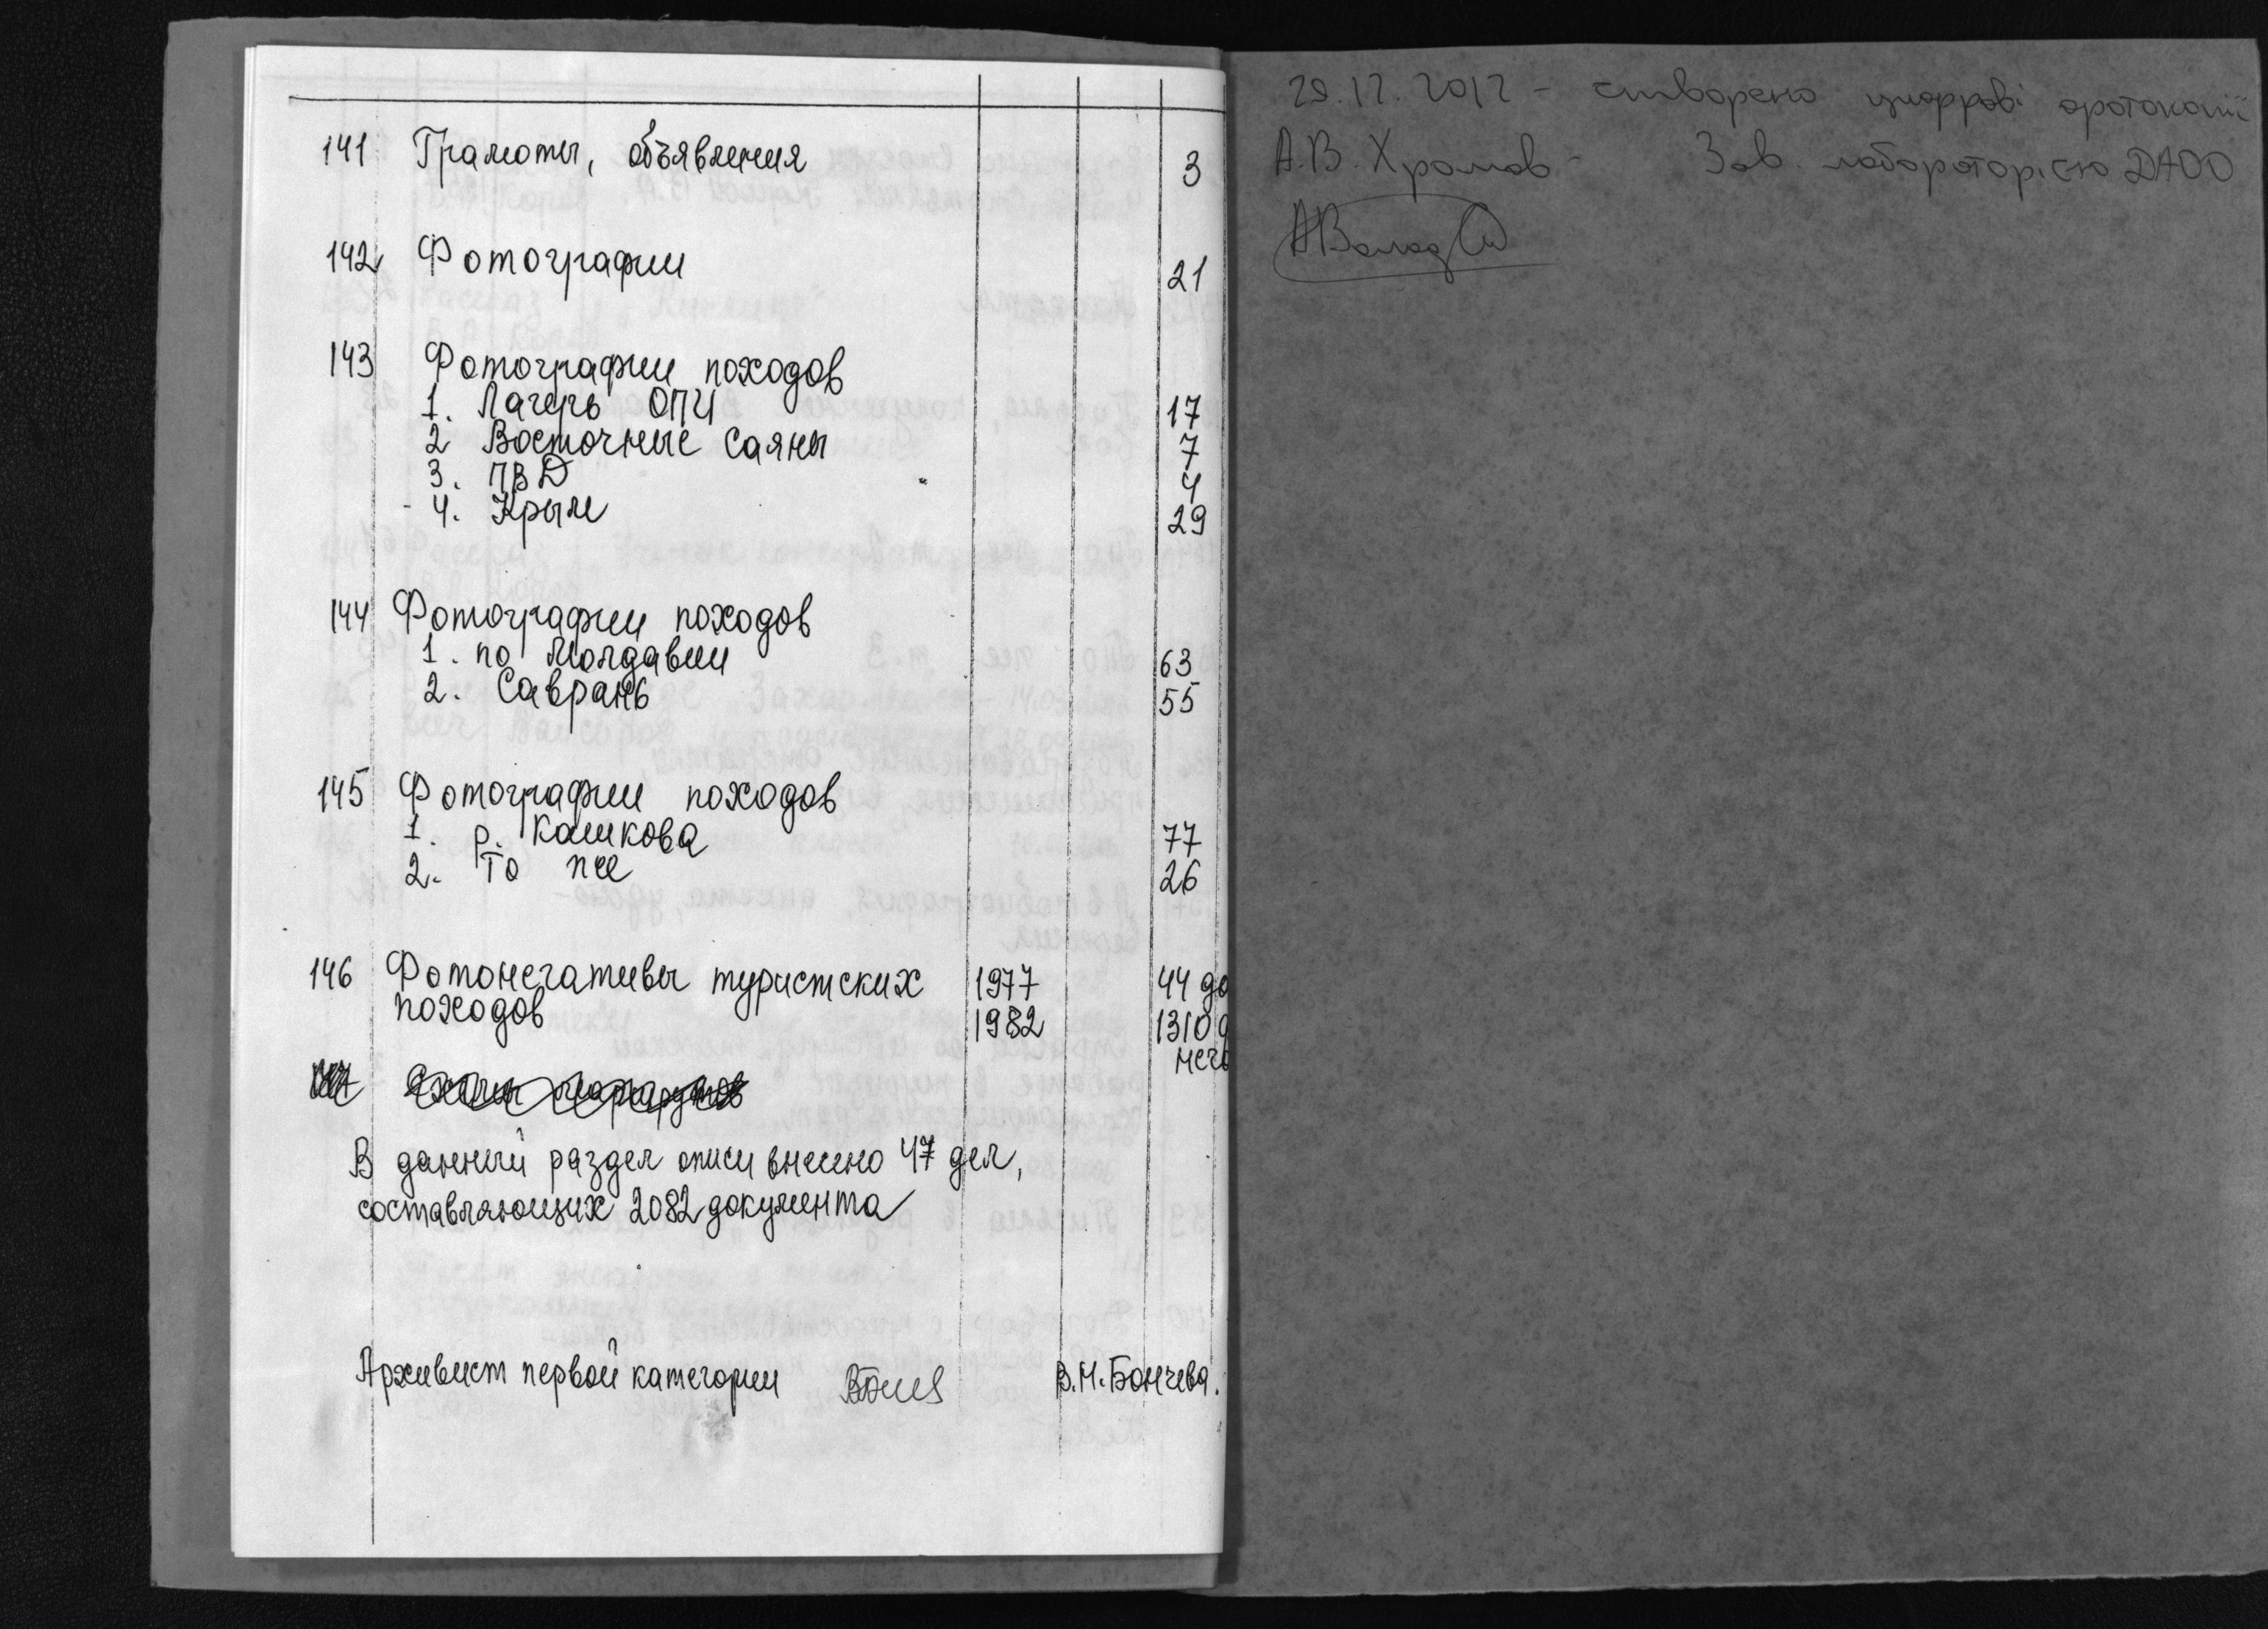 141 Грамоты, объявления 3
142 Фотографии 21
143 Фотографии походов
1. Лагерь ОПИ 17
2 Восточные Саяны 7
3. ПВД 4
4. Крым 29
144 Фотографии походов
1. по Молдавии 63
2. Саврань 55
145 Фотографии походов
1. р. Кашкова 77
2. То же 26
146 Фотонегативы туристских 1977 44 до
походов 1982 1310
нега
147 Схемы маршрутов
В данный раздел описи внесено 47 дел,
составляющих 2082 документа
Архивист первой категории В.Н. Бончева.
29.12.2012 - створено цифрові фотокопії
А.В. Хромов - Зав. лабораторією ДАОО